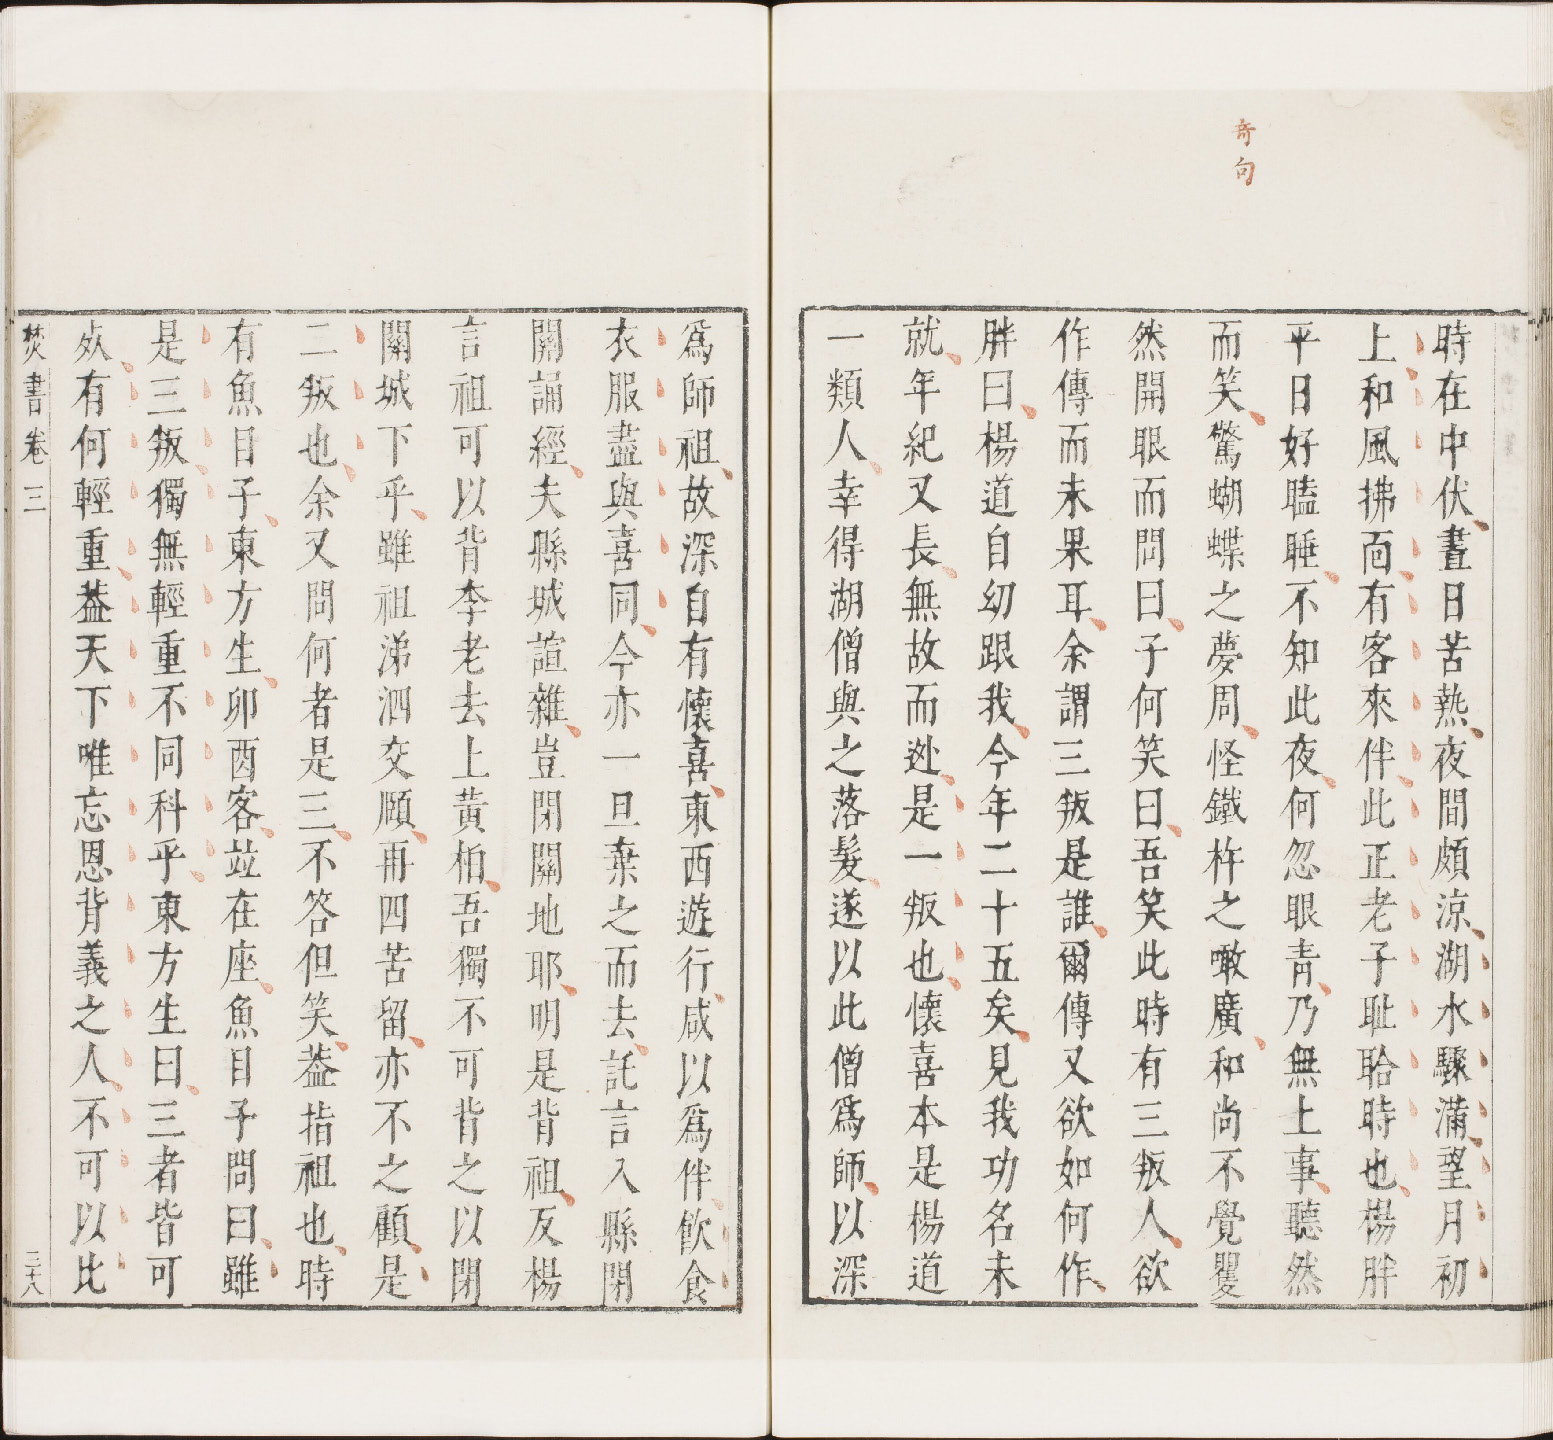 奇句
時在中伏晝日苦熱夜間頗涼湖水驟滿望月初
上和風拂靣有客來伴此正老子眦眙時也楊胖
平日好瞌睡不知此夜何忽眼青乃無上事聽然
而笑驚蝴蝶之夢周怪鐵杵之噉廣和尚不覺矍
然開眼而問曰子何笑曰吾笑此時有三叛人欲
作傳而未果耳余謂三叛是誰爾傳又欲如何作
胖曰楊道自幼跟我今年二十五矣見我功名未
就年紀又長無故而迯是一叛也懷喜本是楊道
一類人幸得湖僧與之落髮遂以此僧爲師以深
爲師祖故深自有懷喜東西遊行咸以爲伴飮食
衣服盡與喜同今亦一旦棄之而去託言入縣閉
關誦經夫縣城諠雜豈閉關地耶明是背祖反楊
言祖可以背李老去上黃柏吾獨不可背之以閉
關城下乎雖祖涕泗交頤再四苦留亦不之顧是
二叛也余又問何者是三不答但笑葢指祖也時
有魚目子東方生卯酉客竝在座魚目子問曰雖
是三叛獨無輕重不同科乎東方生曰三者皆可
㱠有何輕重葢天下唯忘恩背義之人不可以比
焚書卷三
三十八